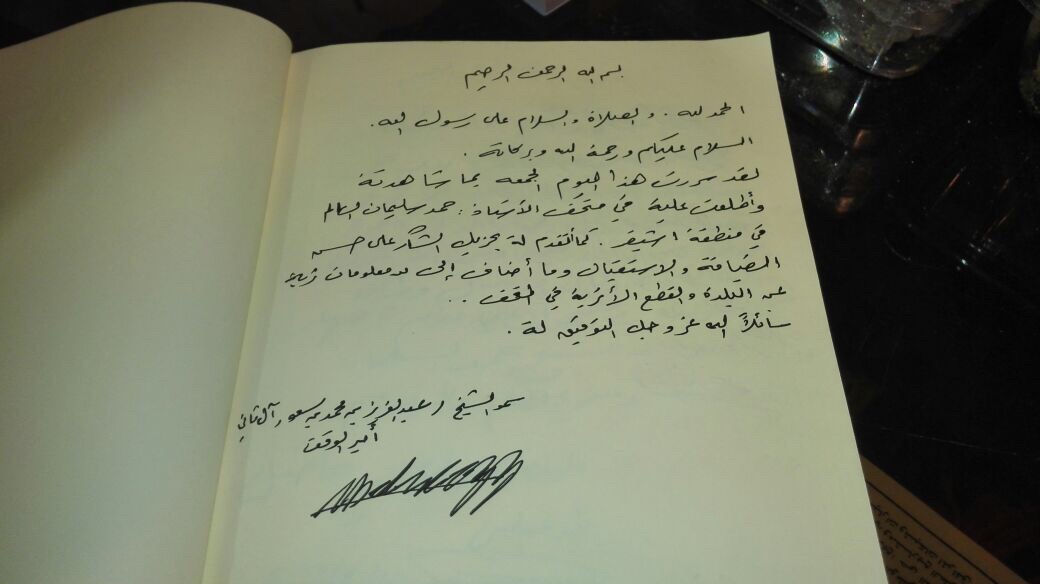 بسم الله الرحمن الرحيم
الحمد لله . والصلاة والسلام على رسول الله .
السلام عليكم ورحمة الله وبركاتة .
لقد سررت هذا اليوم الجمعه بما شاهدتة
وأطلعت علية في متحف الأستاذ : حمد سليمان السالم
في منطقة اشيقر . كما أتقدم لة بجزيل الشكر على حسن
الضيافة والاستقبال وما أضاف إلى من معلومات
عن البلدة والقطع الأثرية في المتحف . .
سائلاً الله عز وجل التوفيق لة .
سمو الشيخ / عبدالعزيز بن محمد بن سعود آل ثاني
أمير الوقف